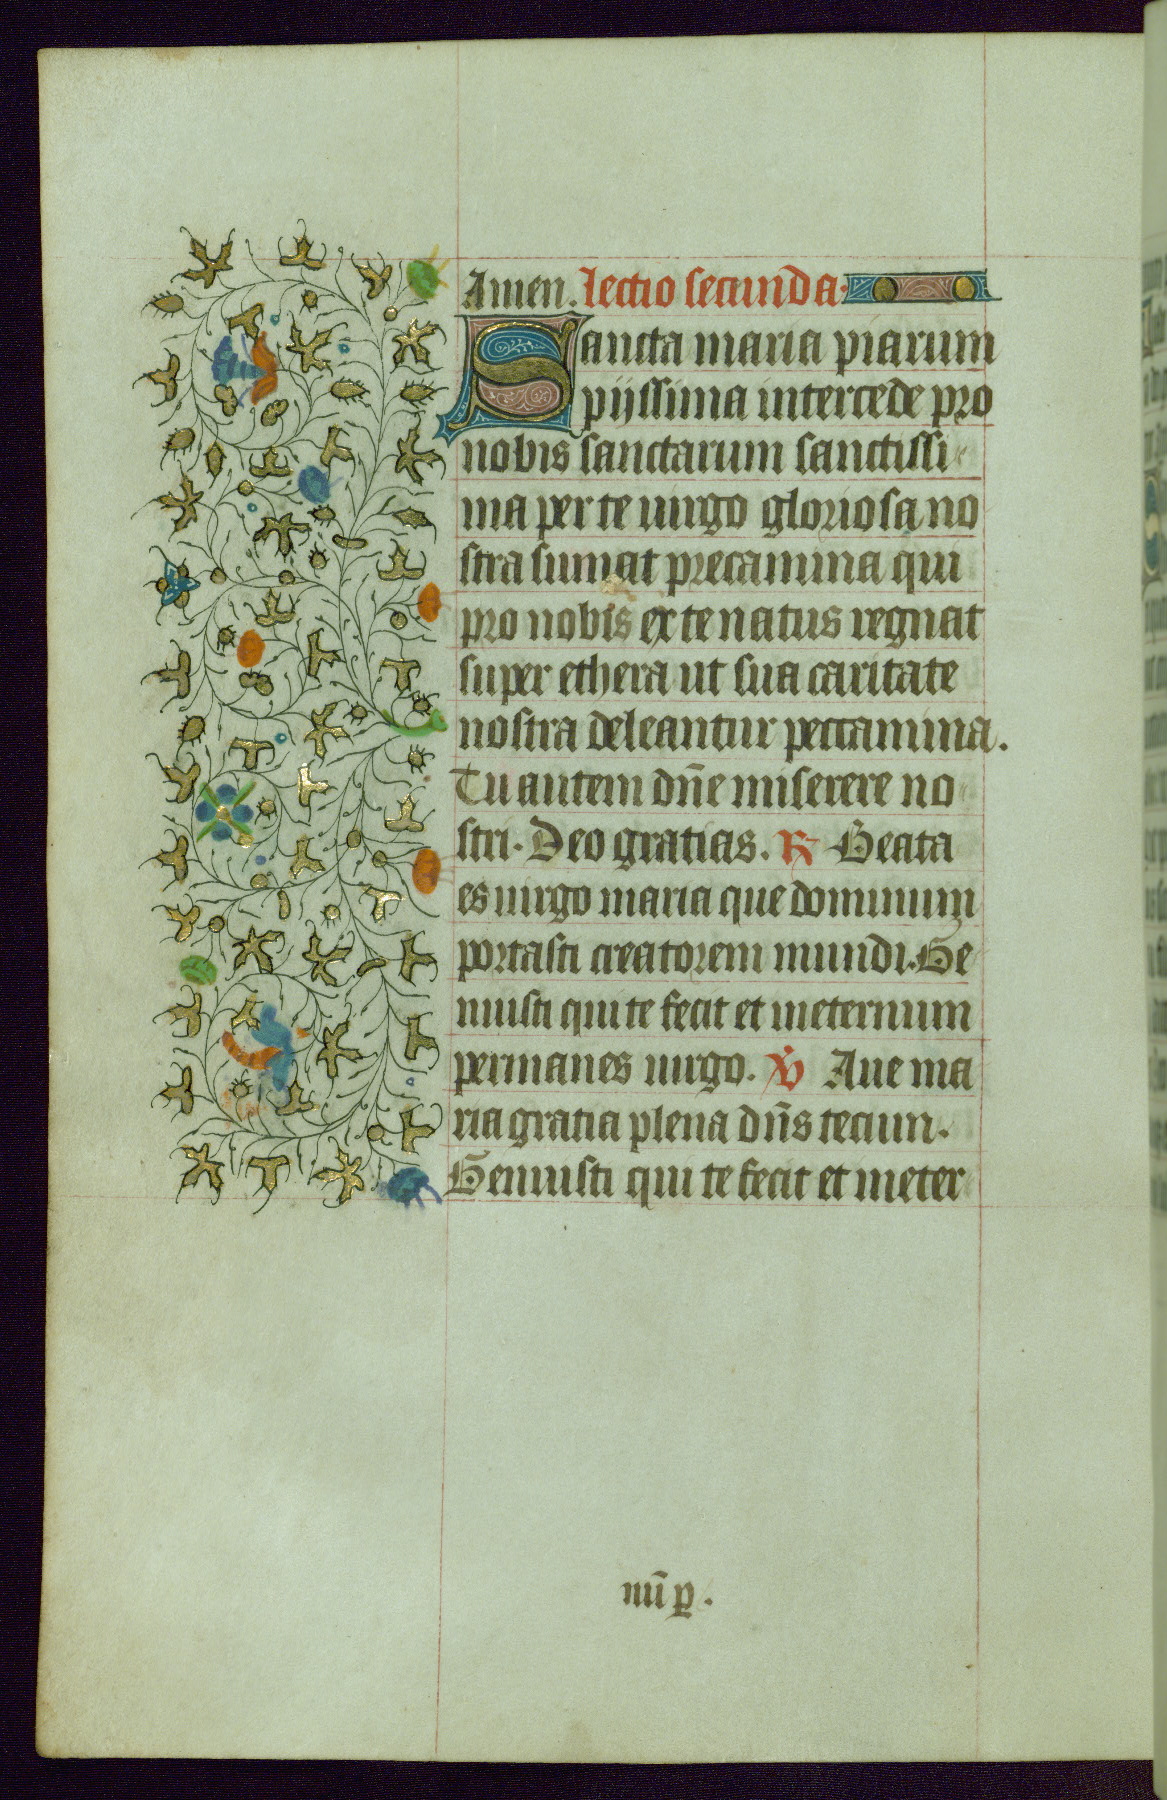 Amen. Lectio secunda.
Sancta maria piarum
pijssima intercede pro
nobis sanctarum sanctissi
ma per te uirgo gloriosa no
stra sumat precamina qui
pro nobis ex te natus regnat
super ethera ut sua caritate
nostra deleantur peccamina.
Tu autem dn̄e miserere no
stri. Deo gratias. R Beata
es uirgo maria que dominum
portasti creatorem mundi. Ge
nuisti qui te fecit et ineternum
permanes uirgo. V̇ Aue ma
ria gratia plena dn̄s tecum.
Genuisti qui te fecit et ineter
nū ꝑ.